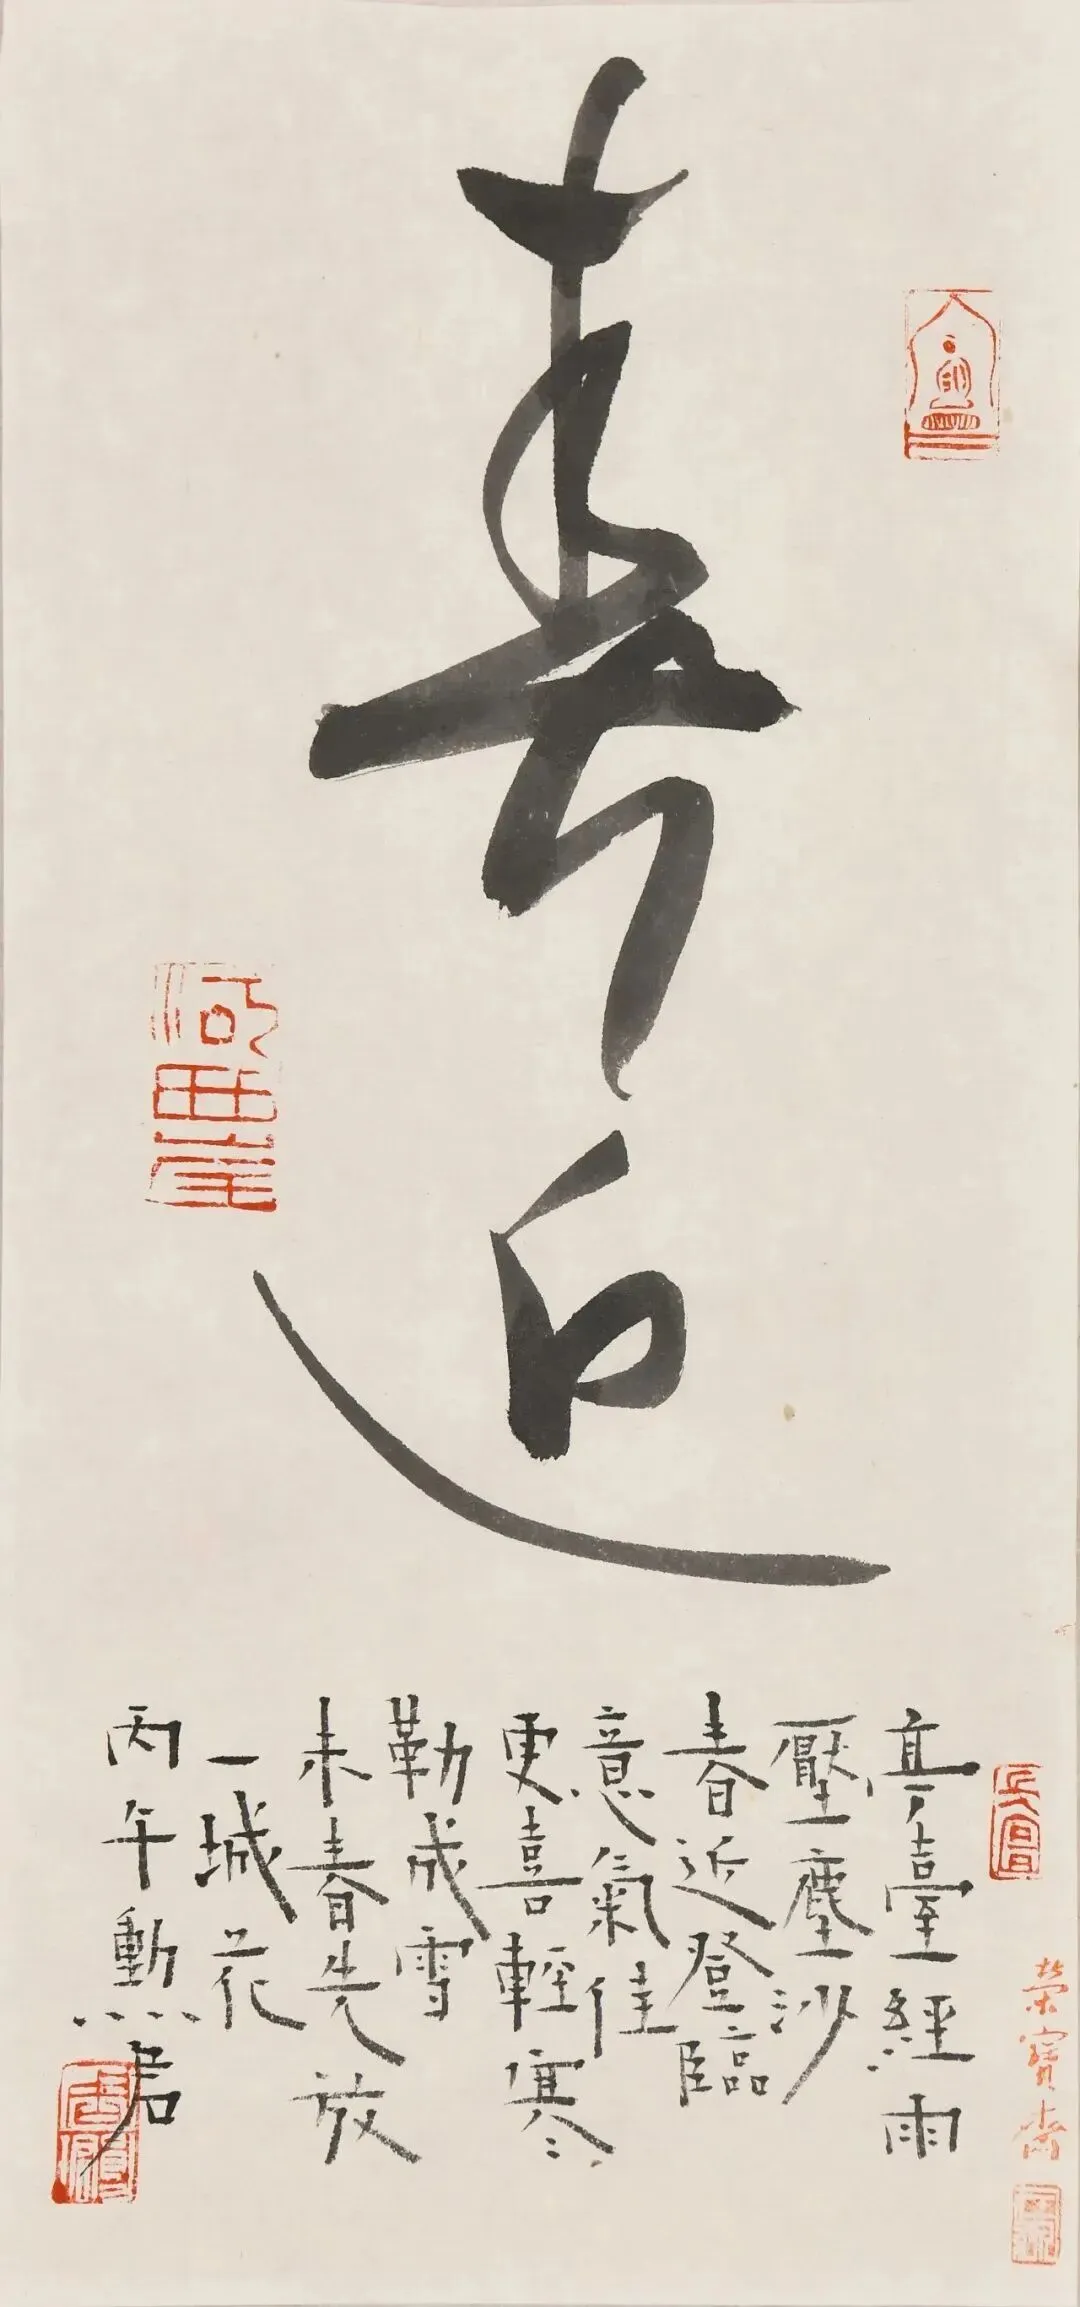 春近
亭臺經雨
壓塵沙
春近登臨
意氣佳
更喜輕寒
勒成雪
未春先放
一城花
丙午勳君
榮寶齋